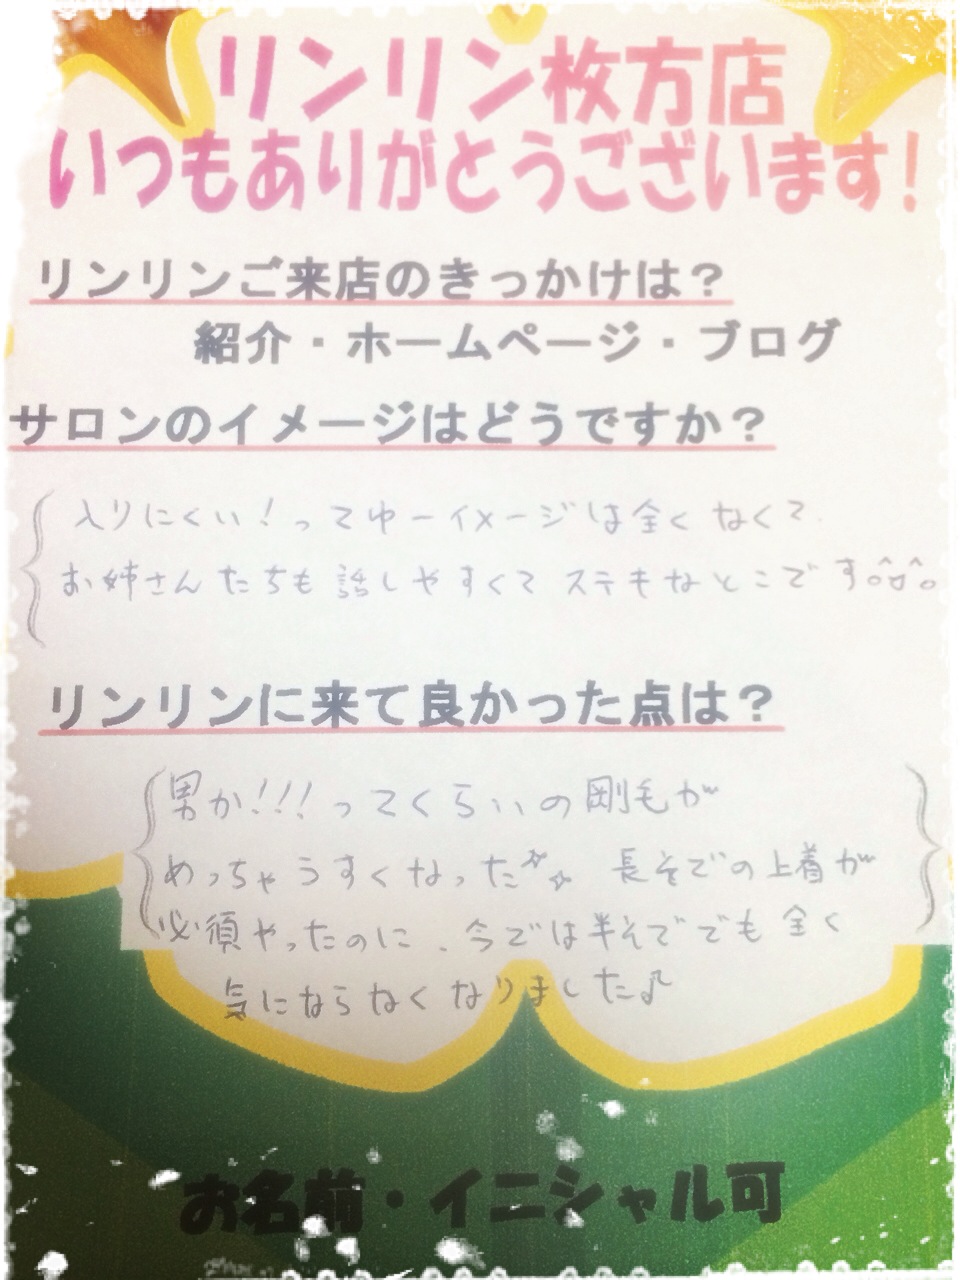 リンリン枚方店
いつもありがとうございます!
リンリンご来店のきっかけは?
紹介・ホームページ・ブログ
サロンのイメージはどうですか?
入りにくい!ってゆーイメージは全くなくて、
お姉さんたちも話しやすくてステキなとこです。^o^。
リンリンに来て良かった点は?
男か!!!ってくらいの剛毛が
めっちゃうすくなった☆☆ 長そでの上着が
必須やったのに、今では半そででも全く
気にならなくなりました♪
お名前・イニシャル可